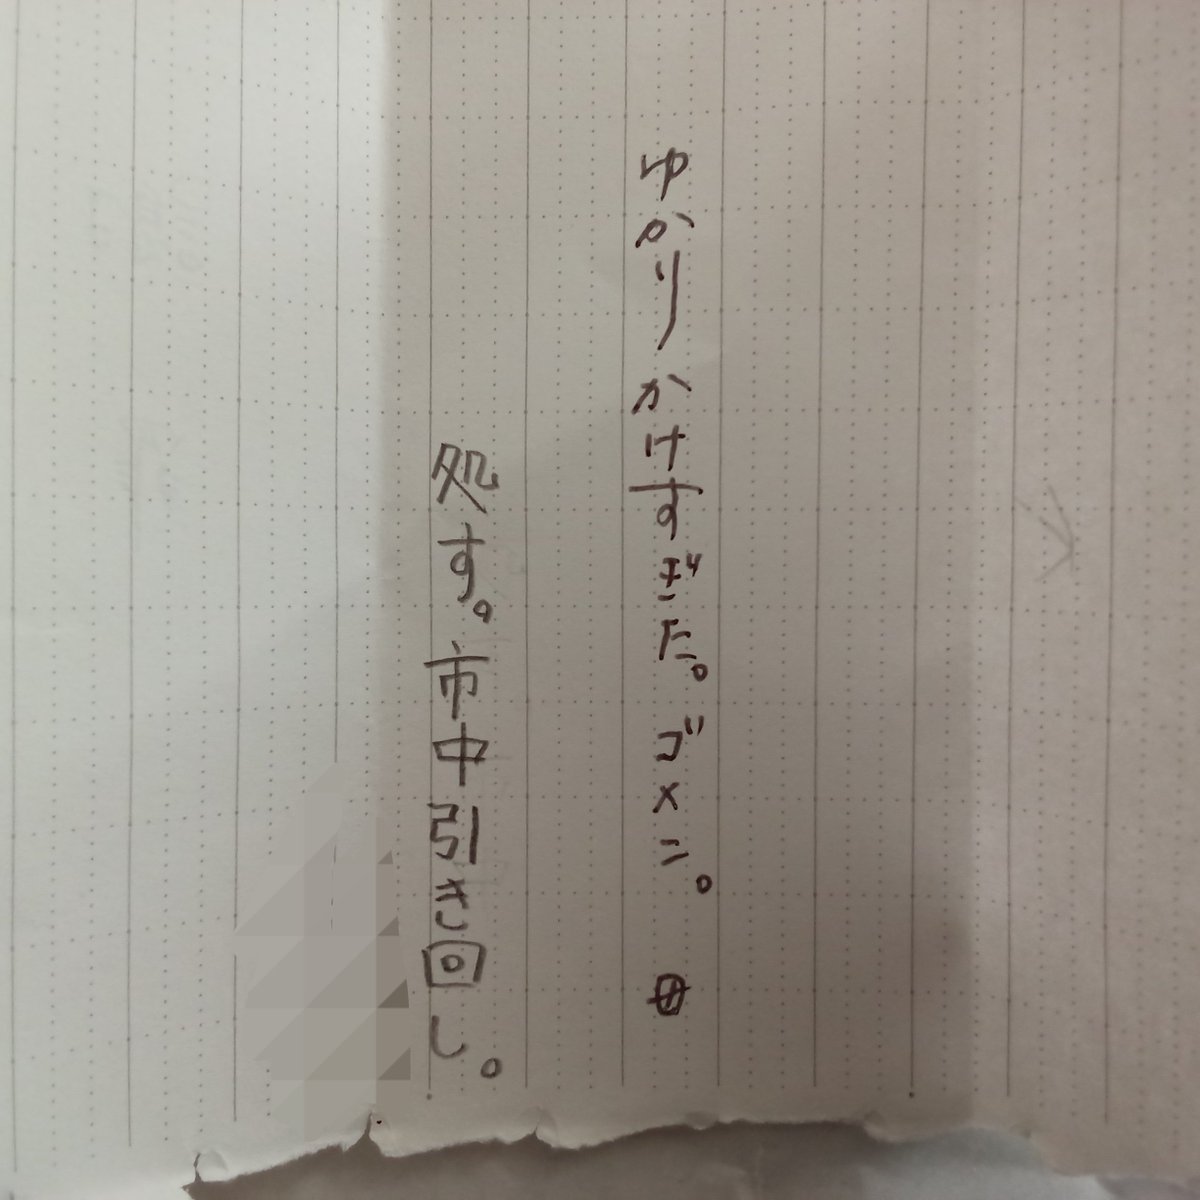 ゆかりかけすぎた。ゴメン。 母
処す。市中引き回し。